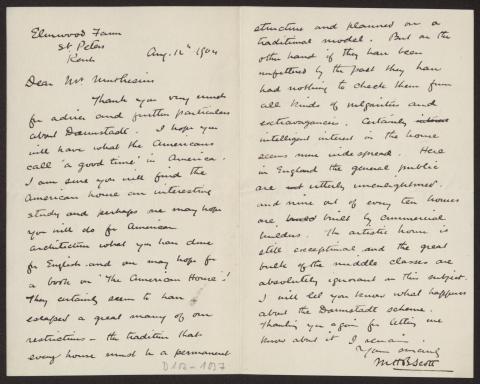 Elmwood Farm
St Peters
Kent
Aug. 12th 1904
Dear Mr Muthesius
Thank you very much
for advice and further particulars
about Darmstadt. I hope you
will have what the Americans
call 'a good time' in America.
I am sure you will find the
American home an interesting
study and perhaps we may hope
you will do for American
architecture what you have done
for English and we may hope for
a book on "The American House"!
They certainly seem to have
escaped a great many of our
restrictions – the tradition that
every house must be a permanent
D 102 - 1037
structure and planned on a
traditional model. But on the
other hand if they have been
unfettered by the past they have
had nothing to check them from
all kinds of vulgarities and
extravagancies. Certainly
intelligent interest in the home
seems more widespread. Here
in England the general public
are utterly unenlightened.
and nine out of every ten houses
are built by commercial
builders. The artistic house is
still exceptional and the great
bulk of the middle classes are
absolutely ignorant on this subject.
I will let you know what happens
about the Darmstadt scheme.
Thanking you again for letting me
know about it I remain
Yours sincerely
M H B Scott